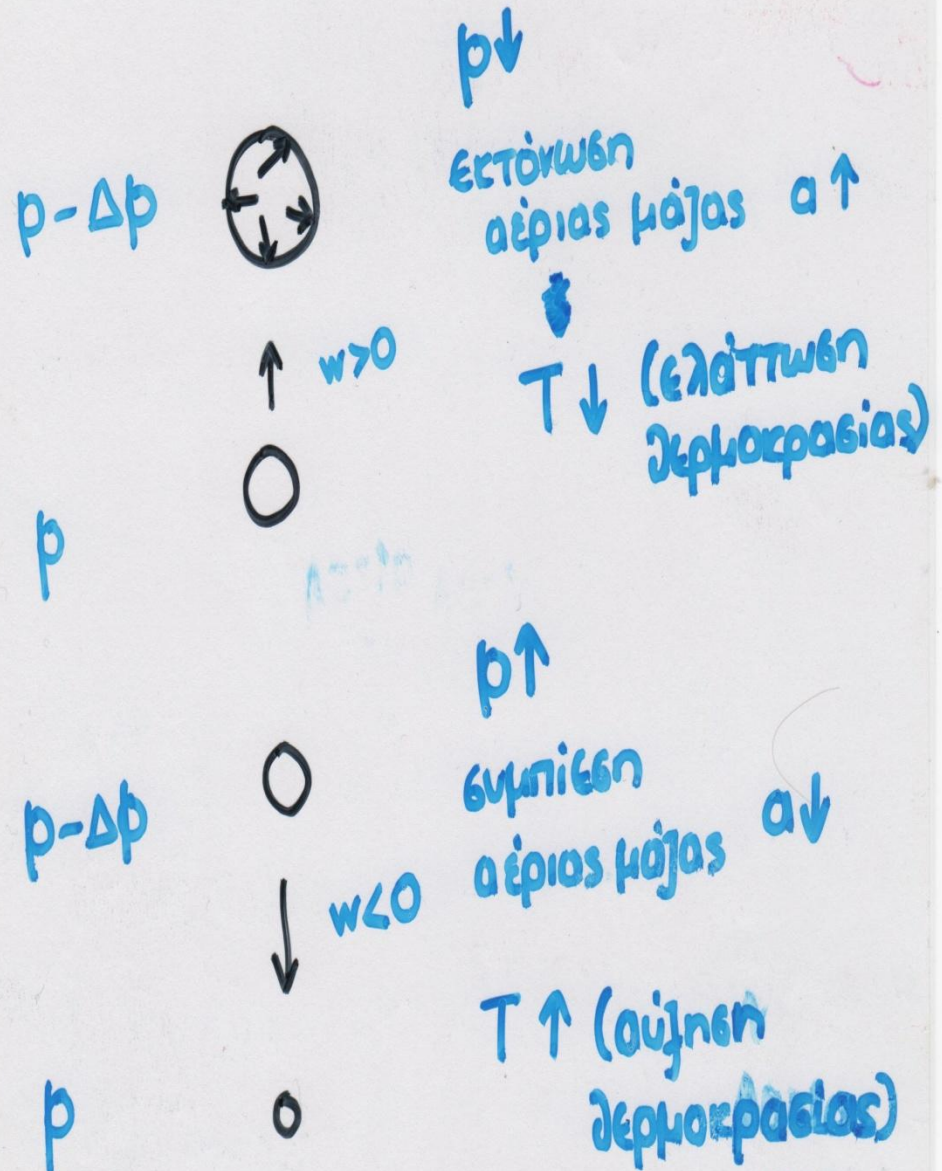 p↓
p-Δp
εκτόνωση
αέριας μάζας α↑
w>0
T↓ (ελάττωση
θερμοκρασίας)
p
p↑
p-Δp
συμπίεση
αέριας μάζας α↓
w<0
T↑ (αύξηση
θερμοκρασίας)
p